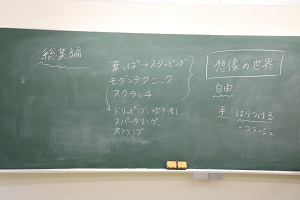 総集編
葉っぱ→スタンピング
モダンテクニック
スクラッチ
ドリッピング、吹き流し
スパッタリング
ストリング
想像の世界
自由
手 はりつける
・コラージュ